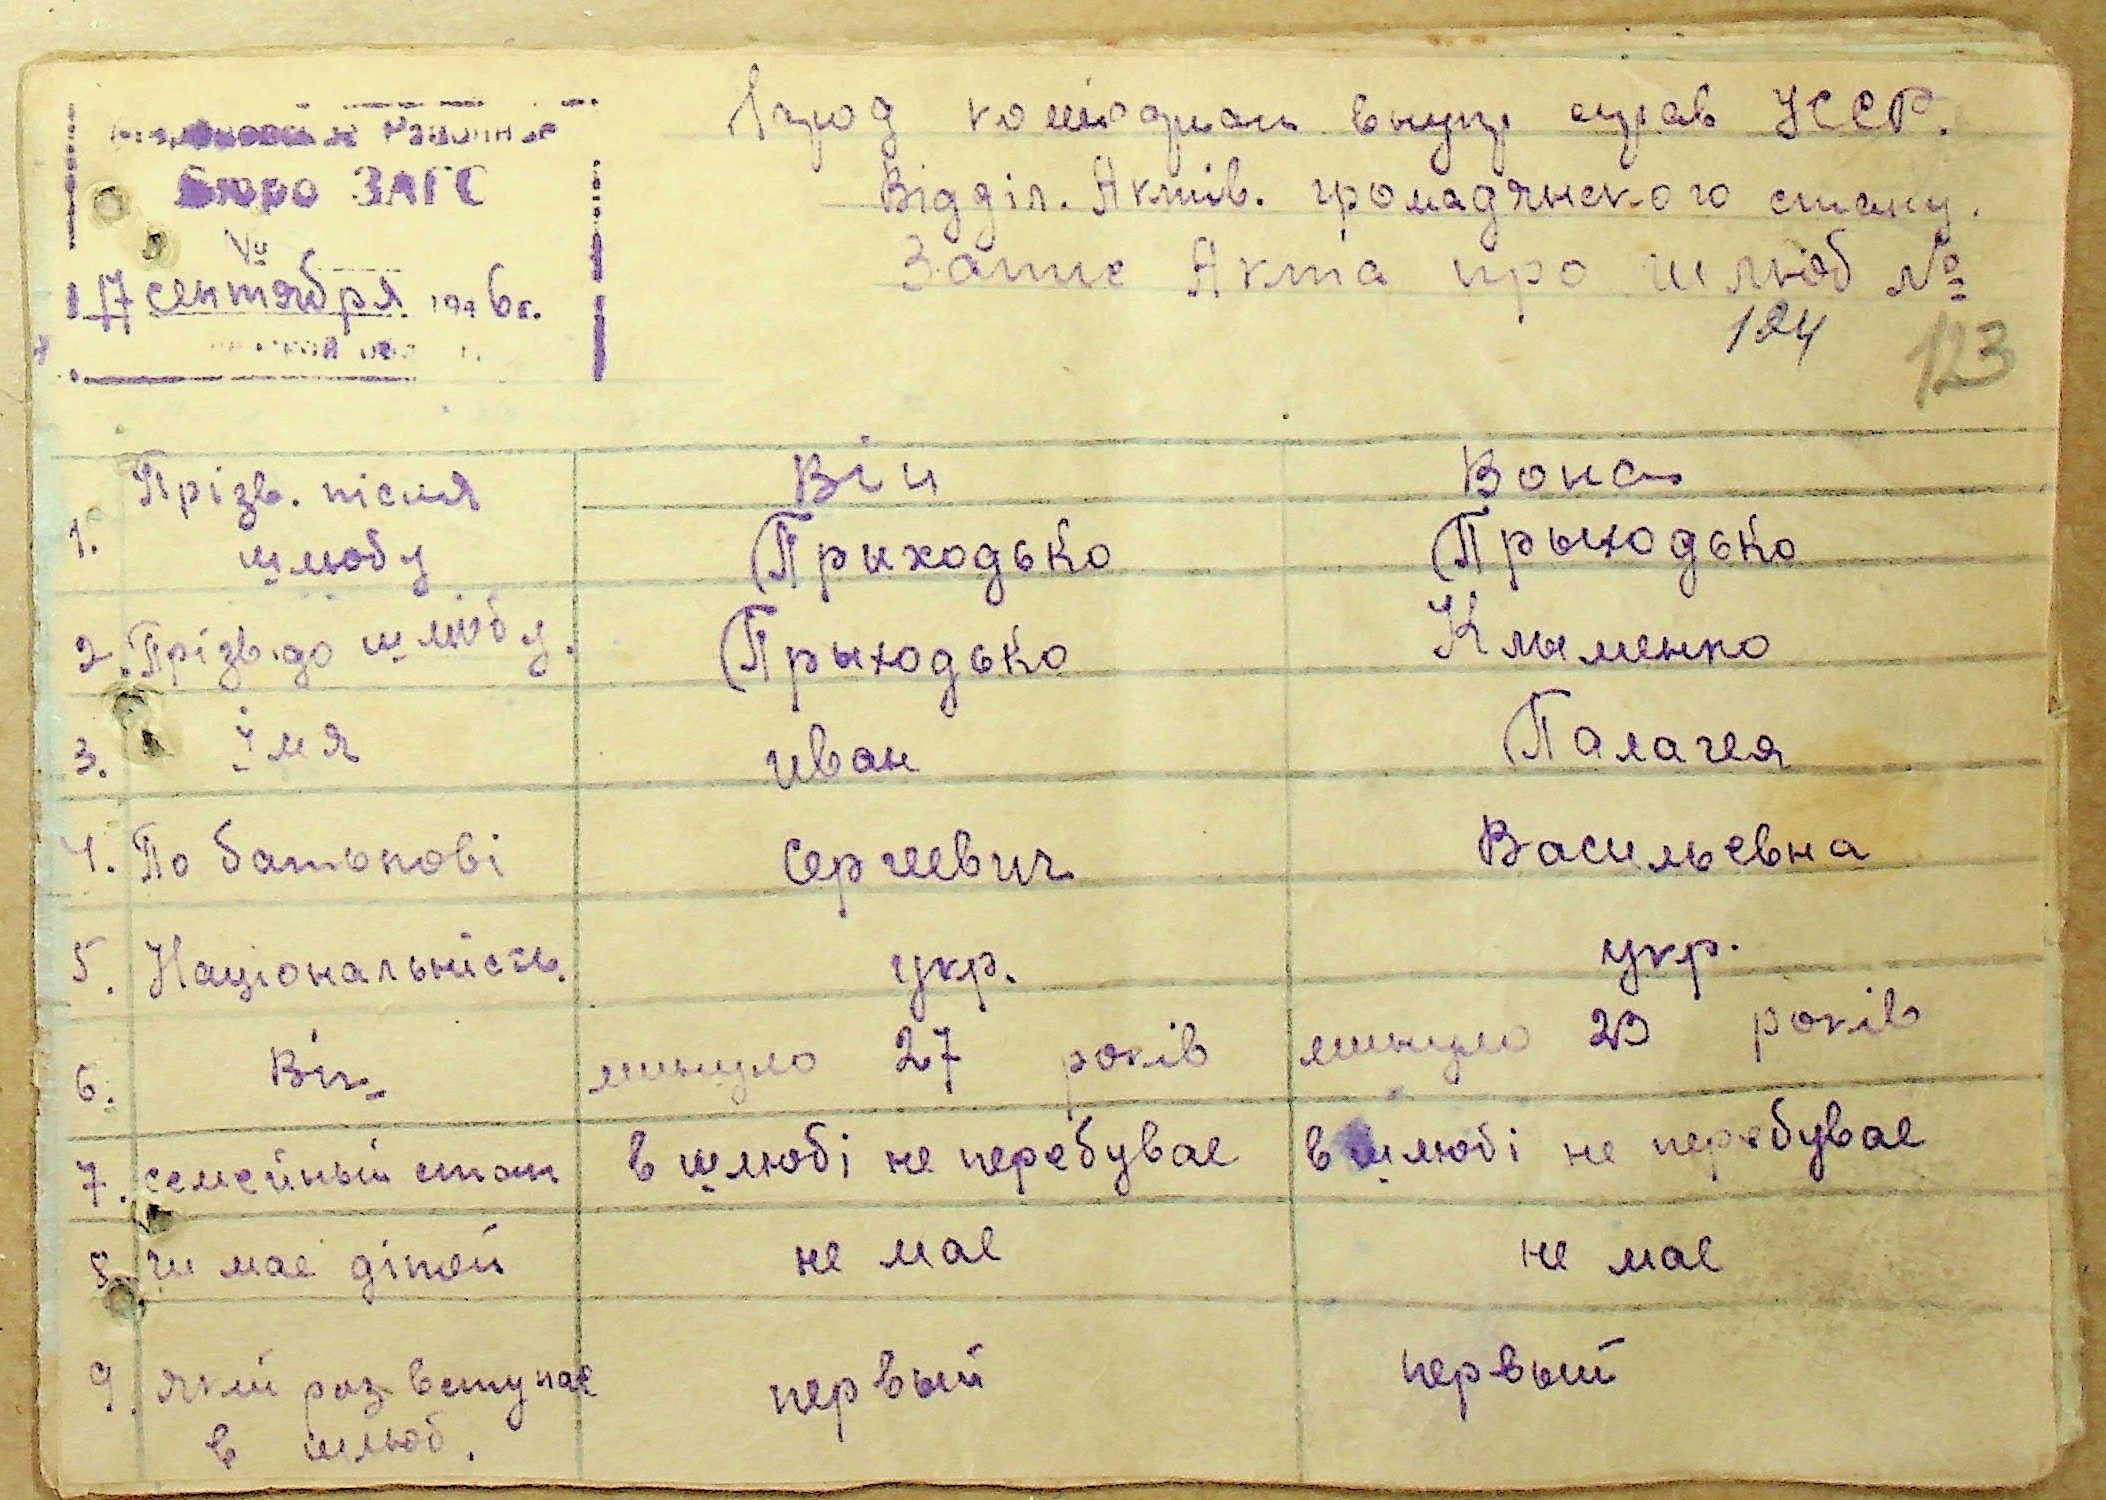 Бюро ЗАГС
№
17 сентября 1946г.
внутр справ УССР.
Відділ. Актів. громадянского стану.
Запис Акта про шлюб №
124 123
Він Вона
1. Прізв. після
шлюбу Прыходько Прыходько
2. Прізв. до шлюбу. Прыходько Клыменко
3. Імя Иван Палагея
4. По батькові Сергеевич Васильевна
5. Національність. укр. укр.
6. Вік минуло 27 років минуло 23 років
7. семейный стан в шлюбі не перебувае в шлюбі не перебувае
8. чи мае дітей не мае не мае
9. який раз вступае
в шлюб. первый первый